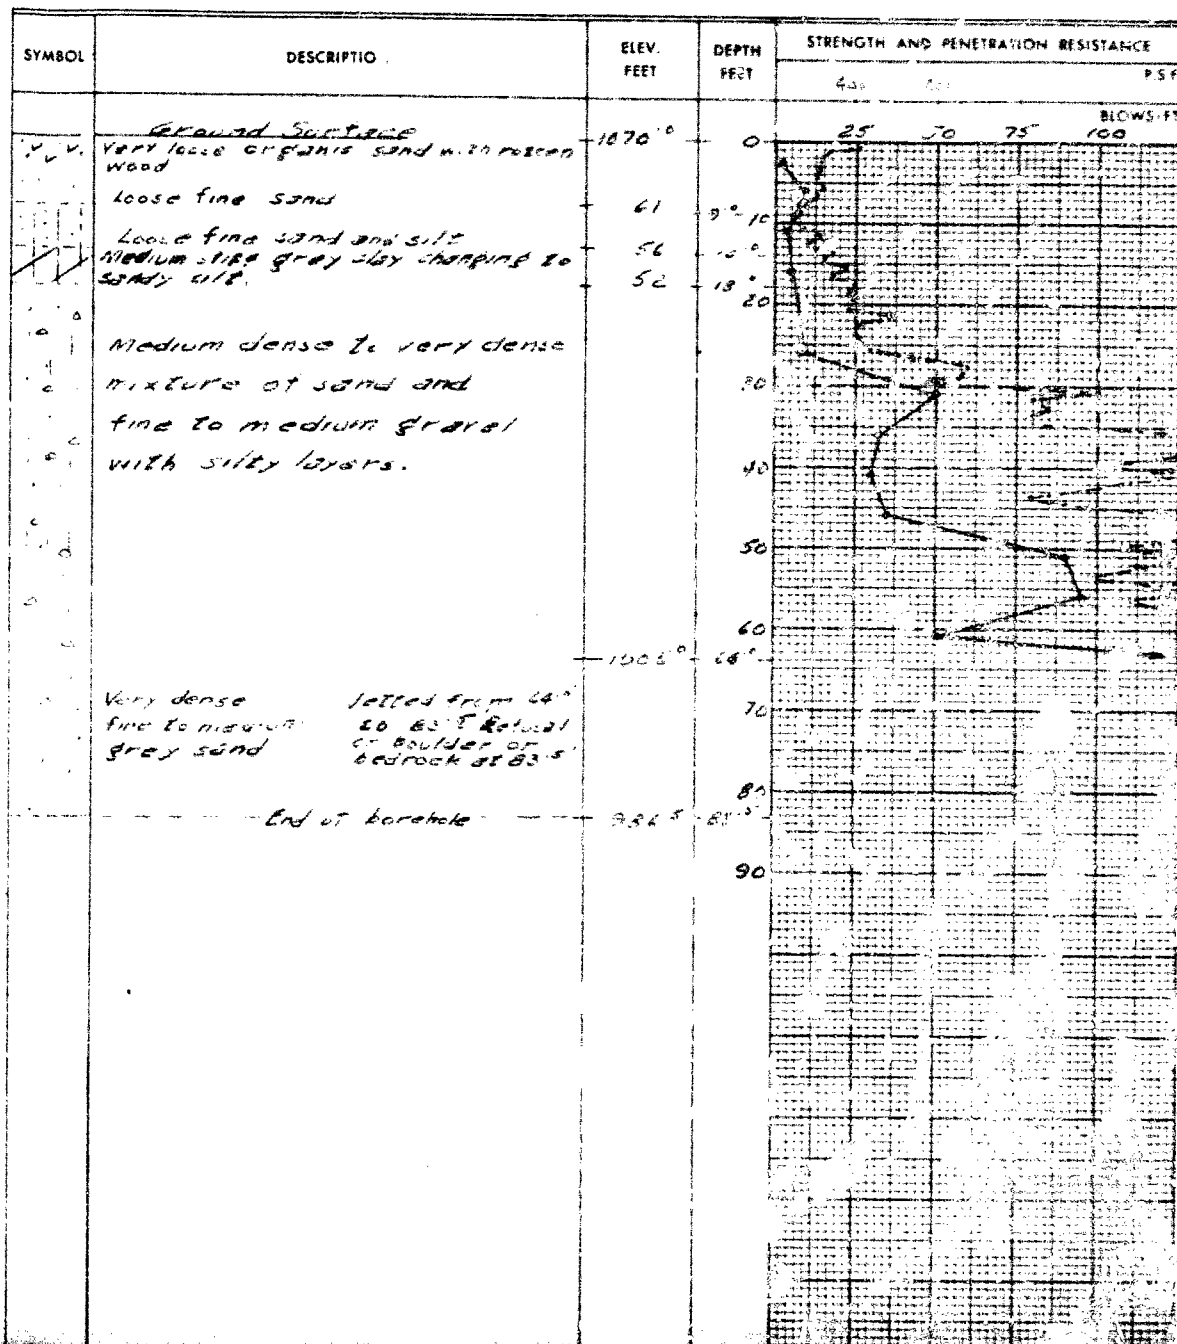 SYMBOL
DESCRIPTIO
ELEV.
FEET
DEPTH
FEET
STRENGTH AND PENETRATION RESISTANCE
P.S.F
400
BLOWS-FT
25 50 75 100
Ground Surface
1070.0
0
Very loose organic sand with rotten
wood
Loose fine sand
61
9.0
10
Loose fine sand and silt
56
Medium stiff grey clay changing to
sandy silt.
52
18.0
20
Medium dense to very dense
mixture of sand and
fine to medium gravel
with silty layers.
30
40
50
60
Very dense
fine to medium
grey sand
Jetted from 64.0
to Refusal
or boulder or
bedrock at 83.5
70
80
End of borehole
986.5
90